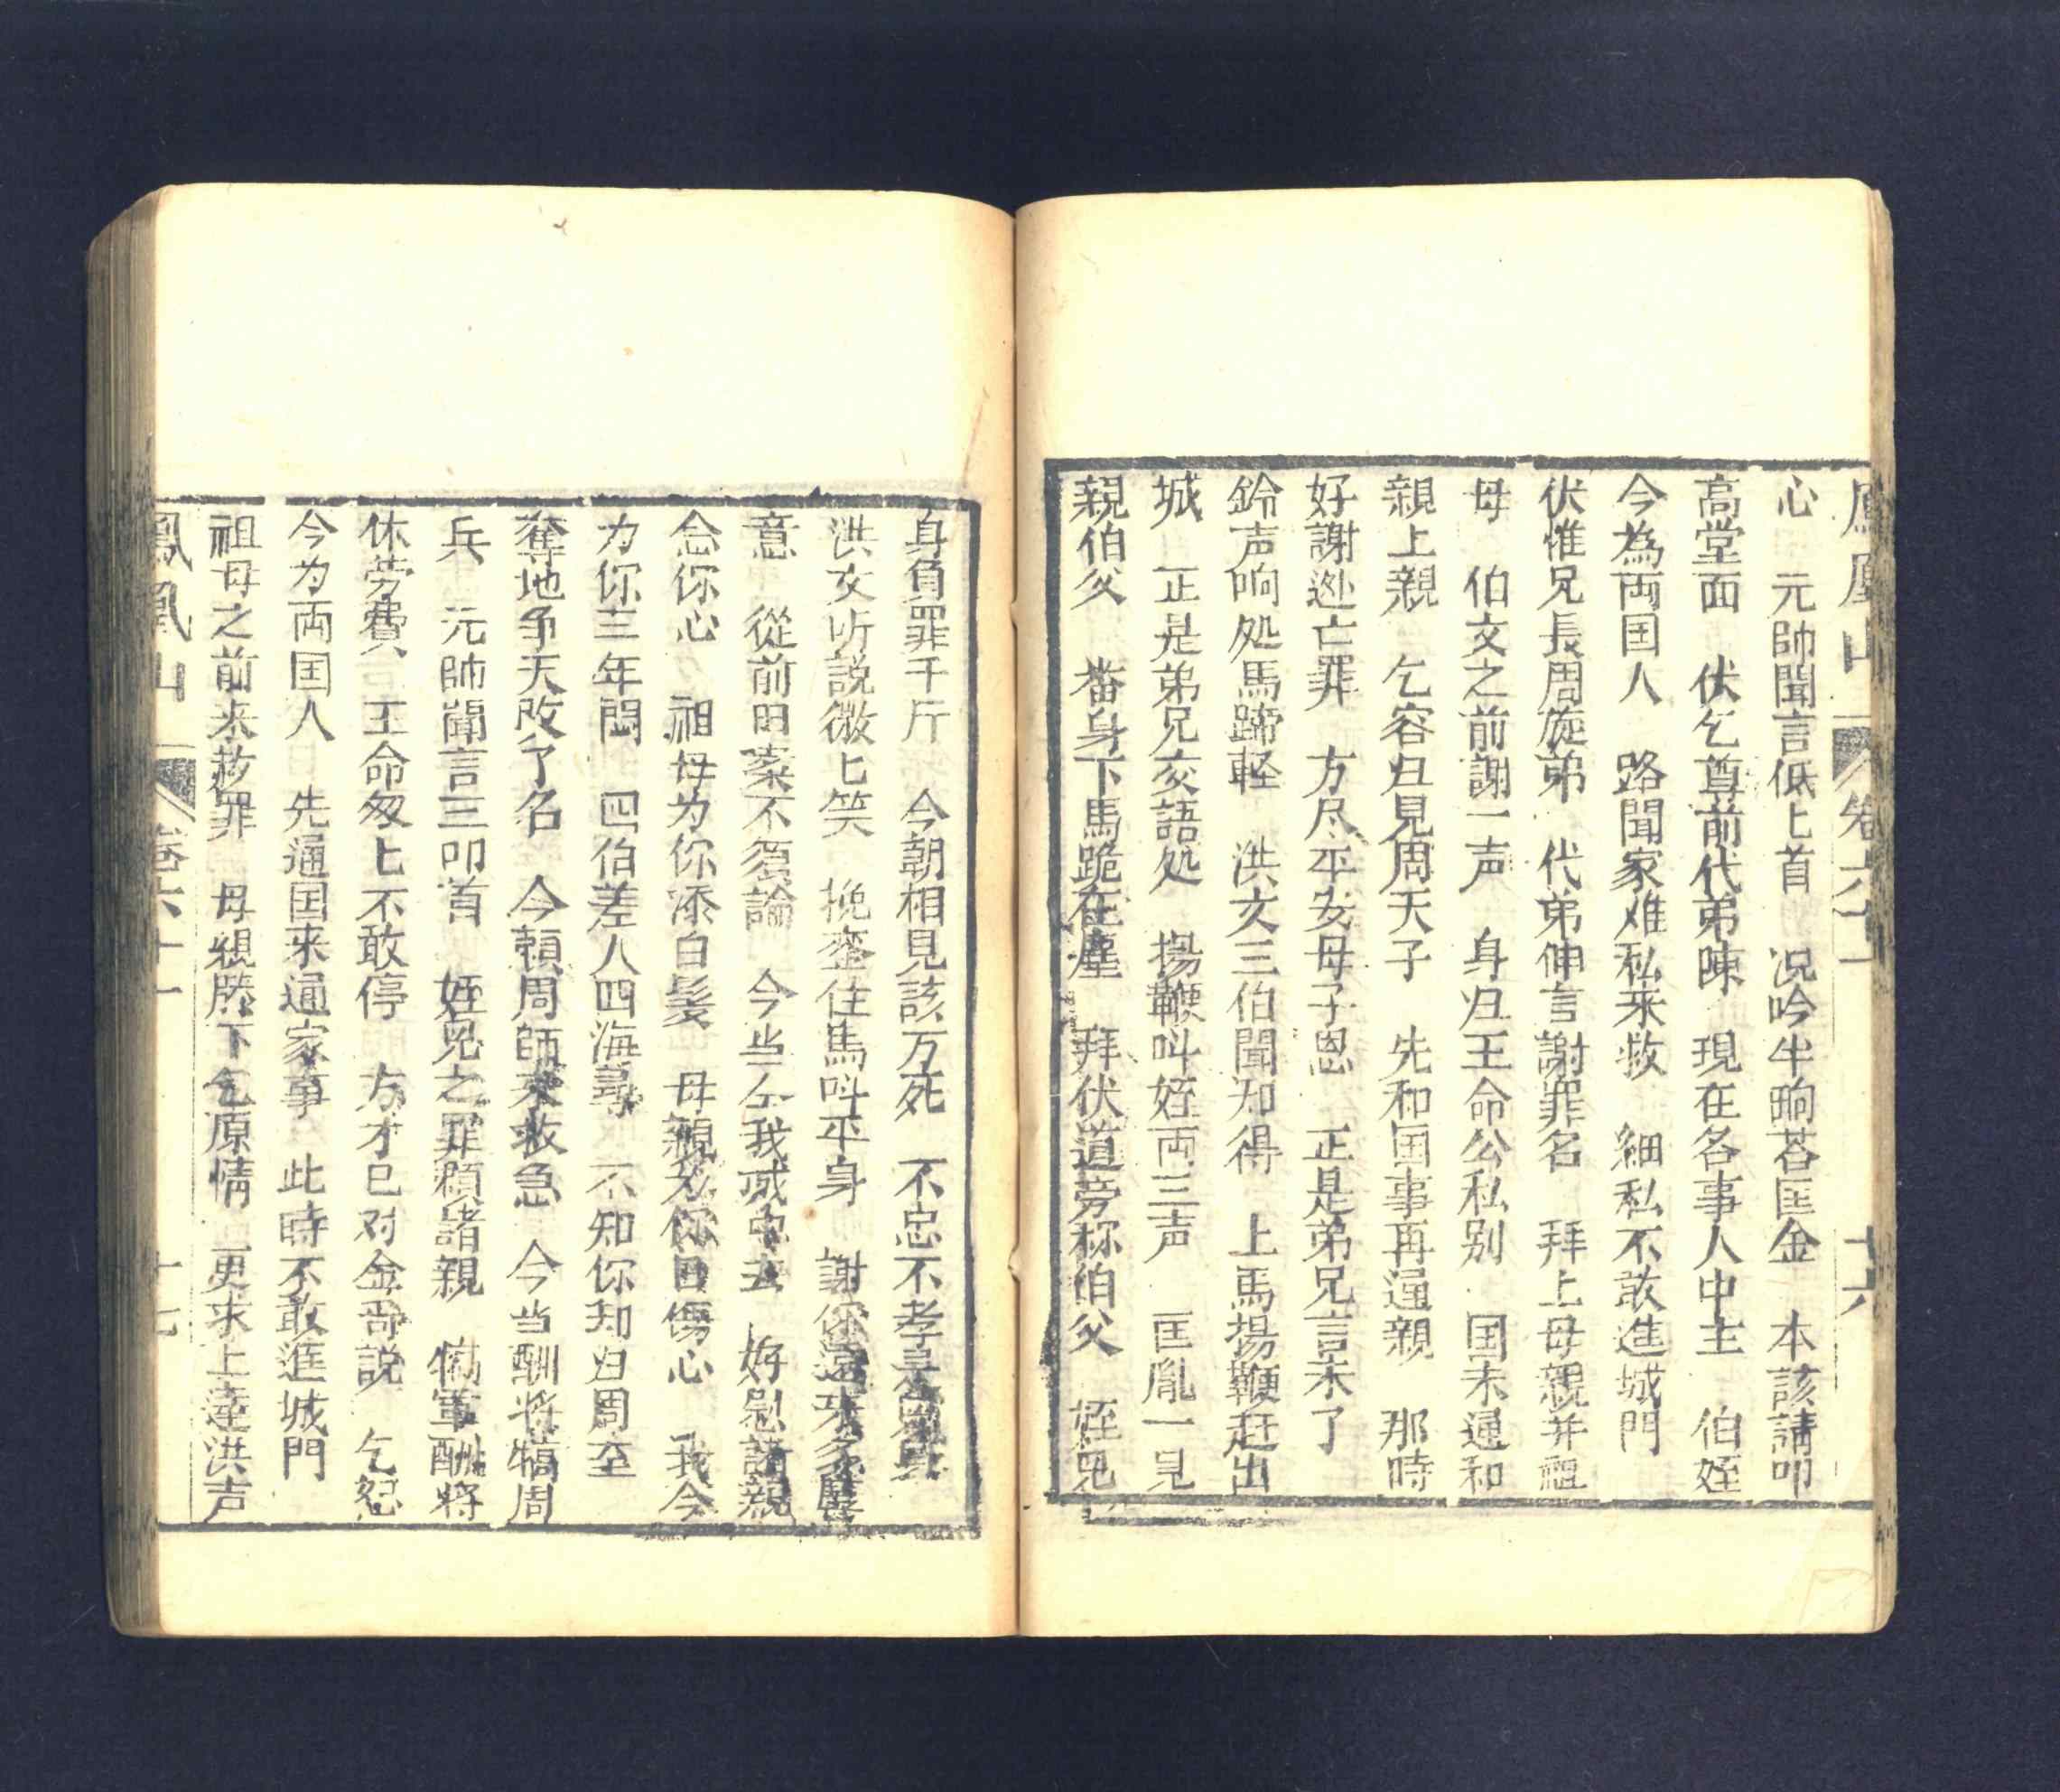 鳳凰山 卷六十一 十六
心 元帥聞言低匕首 况吟半晌荅匡金 本該請叩
高堂面 伏乞尊前代弟陳 現在各事人中主 伯姪
今為両囯人 路聞家难私来救 細私不敢進城門
伏惟兄長周旋弟 代弟伸言謝罪名 拜上母親并祖
母 伯文之前謝一声 身归王命公私别 囯未通和
親上親 乞容归見周天子 先和囯事再通親 那時
好謝逃亡罪 方尽平安母子恩 正是弟兄言未了
鈴声响処馬蹄軽 洪文三伯聞知得 上馬揚鞭赶出
城 正是弟兄交語処 揚鞭呌姪両三声 匡胤一見
親伯父 番身下馬跪在塵 拜伏道旁称伯父 姪兒
身負罪千斤 今朝相見該万死 不忠不孝
洪文听説微匕笑 挽住馬呌平身 謝你逺来多
意 從前旧案不須論 今当仝我城中去 好慰諸親
念你心 祖母为你添白髪 母親为你日傷心 我今
为你三年悶 四伯差人四海尋 不知你却归周至
奪地争天改了名 今頼周師来救急 今当酬将犒周
兵 元帥聞言三叩首 姪兒之罪頼諸親 犒軍酬将
休劳費 王命匆匕不敢停 方才已对金哥説 乞恕
今为両囯人 先通囯来通家事 此時不敢進城門
祖母之前来荻罪 母親膝下乞原情 更求上逹洪声
鳳凰山 卷六十一 十七